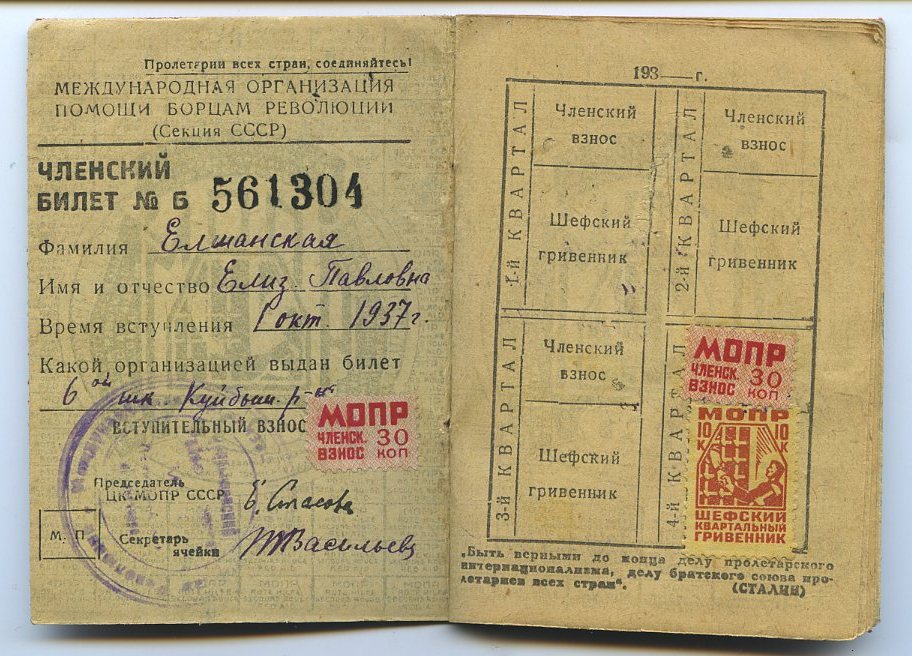 Пролетарии всех стран, соединяйтесь!
МЕЖДУНАРОДНАЯ ОРГАНИЗАЦИЯ
ПОМОЩИ БОРЦАМ РЕВОЛЮЦИИ
(Секция СССР)
ЧЛЕНСКИЙ
БИЛЕТ № Б 561304
Фамилия Елшанская
Имя и отчество Елиз. Павловна
Время вступления 1 окт. 1937г.
Какой организацией выдан билет
6ой шк. Куйбыш. р-на
ВСТУПИТЕЛЬНЫЙ ВЗНОС
МОПР
ЧЛЕНСК. 30
ВЗНОС КОП
Председатель
ЦК МОПР СССР Е. Стасова
М. П.
Секретарь
ячейки Васильев
193 — г.
1-й КВАРТАЛ
Членский
взнос
Шефский
гривенник
2-й КВАРТАЛ
Членский
взнос
Шефский
гривенник
3-й КВАРТАЛ
Членский
взнос
Шефский
гривенник
4-й КВАРТАЛ
МОПР
ЧЛЕНСК. 30
ВЗНОС КОП
МОПР
10 К 10 К
ШЕФСКИЙ
КВАРТАЛЬНЫЙ
ГРИВЕННИК
„Быть верными до конца делу пролетарского
интернационализма, делу братского союза про-
летариев всех стран“.
(СТАЛИН)